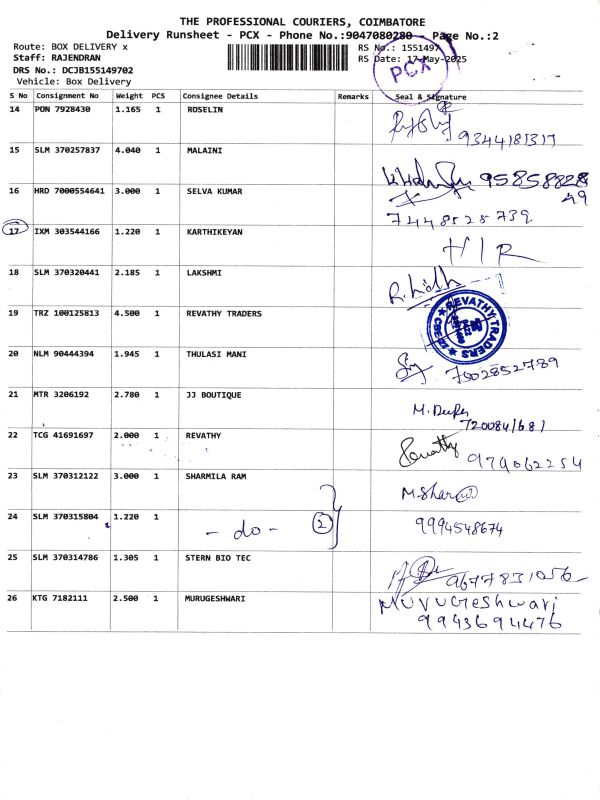 THE PROFESSIONAL COURIERS, COIMBATORE
Delivery Runsheet - PCX - Phone No.:9047080280 - Page No.:2
Route: BOX DELIVERY x
RS No.: 1551497
Staff: RAJENDRAN
RS Date: 17-May-2025
DRS No.: DCJB155149702
Vehicle: Box Delivery
PCX
S No Consignment No Weight PCS Consignee Details Remarks Seal & Signature
14 PON 7928430 1.165 1 ROSELIN
9344181317
15 SLM 370257837 4.040 1 MALAINI
95858828
49
16 HRD 7000554641 3.000 1 SELVA KUMAR
7448528739.
17 IXM 303544166 1.220 1 KARTHIKEYAN
H/R
18 SLM 370320441 2.185 1 LAKSHMI
19 TRZ 100125813 4.500 1 REVATHY TRADERS
REVATHY TRADERS
20 NLM 90444394 1.945 1 THULASI MANI
7502852789
21 MTR 3206192 2.780 1 JJ BOUTIQUE
M.
7200841681
22 TCG 41691697 2.000 1 REVATHY
Revathy
979062254
23 SLM 370312122 3.000 1 SHARMILA RAM
24 SLM 370315804 1.220 1
- do - 2
9994548674
25 SLM 370314786 1.305 1 STERN BIO TEC
9677831056
26 KTG 7182111 2.500 1 MURUGESHWARI
MURUGeshwari
9943694476